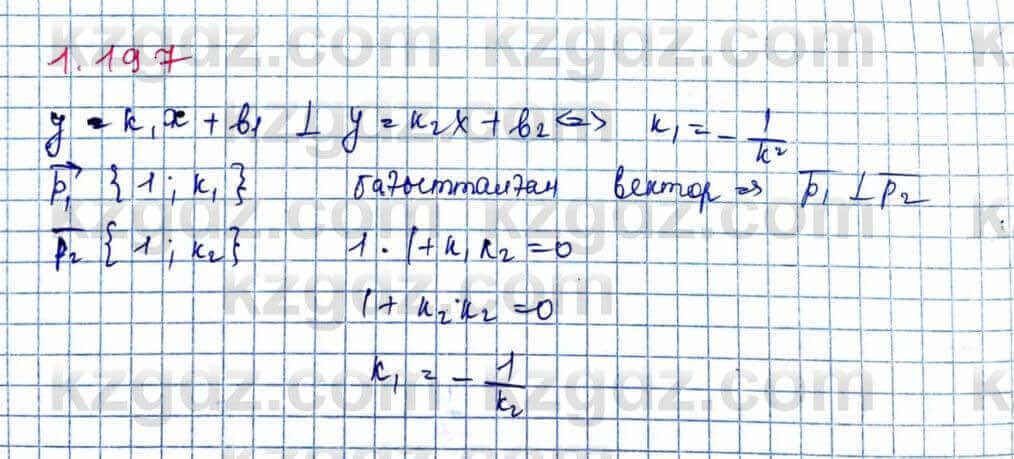 1.197
y = k₁x + b₁ ⊥ y = k₂x + b₂ <=> k₁ = - 1/k²
p₁ {1; k₁} бағытталған вектор => p₁ ⊥ p₂
p₂ {1; k₂} 1 · 1 + k₁ k₂ = 0
1 + k₂ · k₂ = 0
k₁ = - 1/k₂
kzgdz.com kzgdz.com
kzgdz.com kzgdz.com
kzgdz.com kzgdz.com
kzgdz.com kzgdz.com
kzgdz.com kzgdz.com